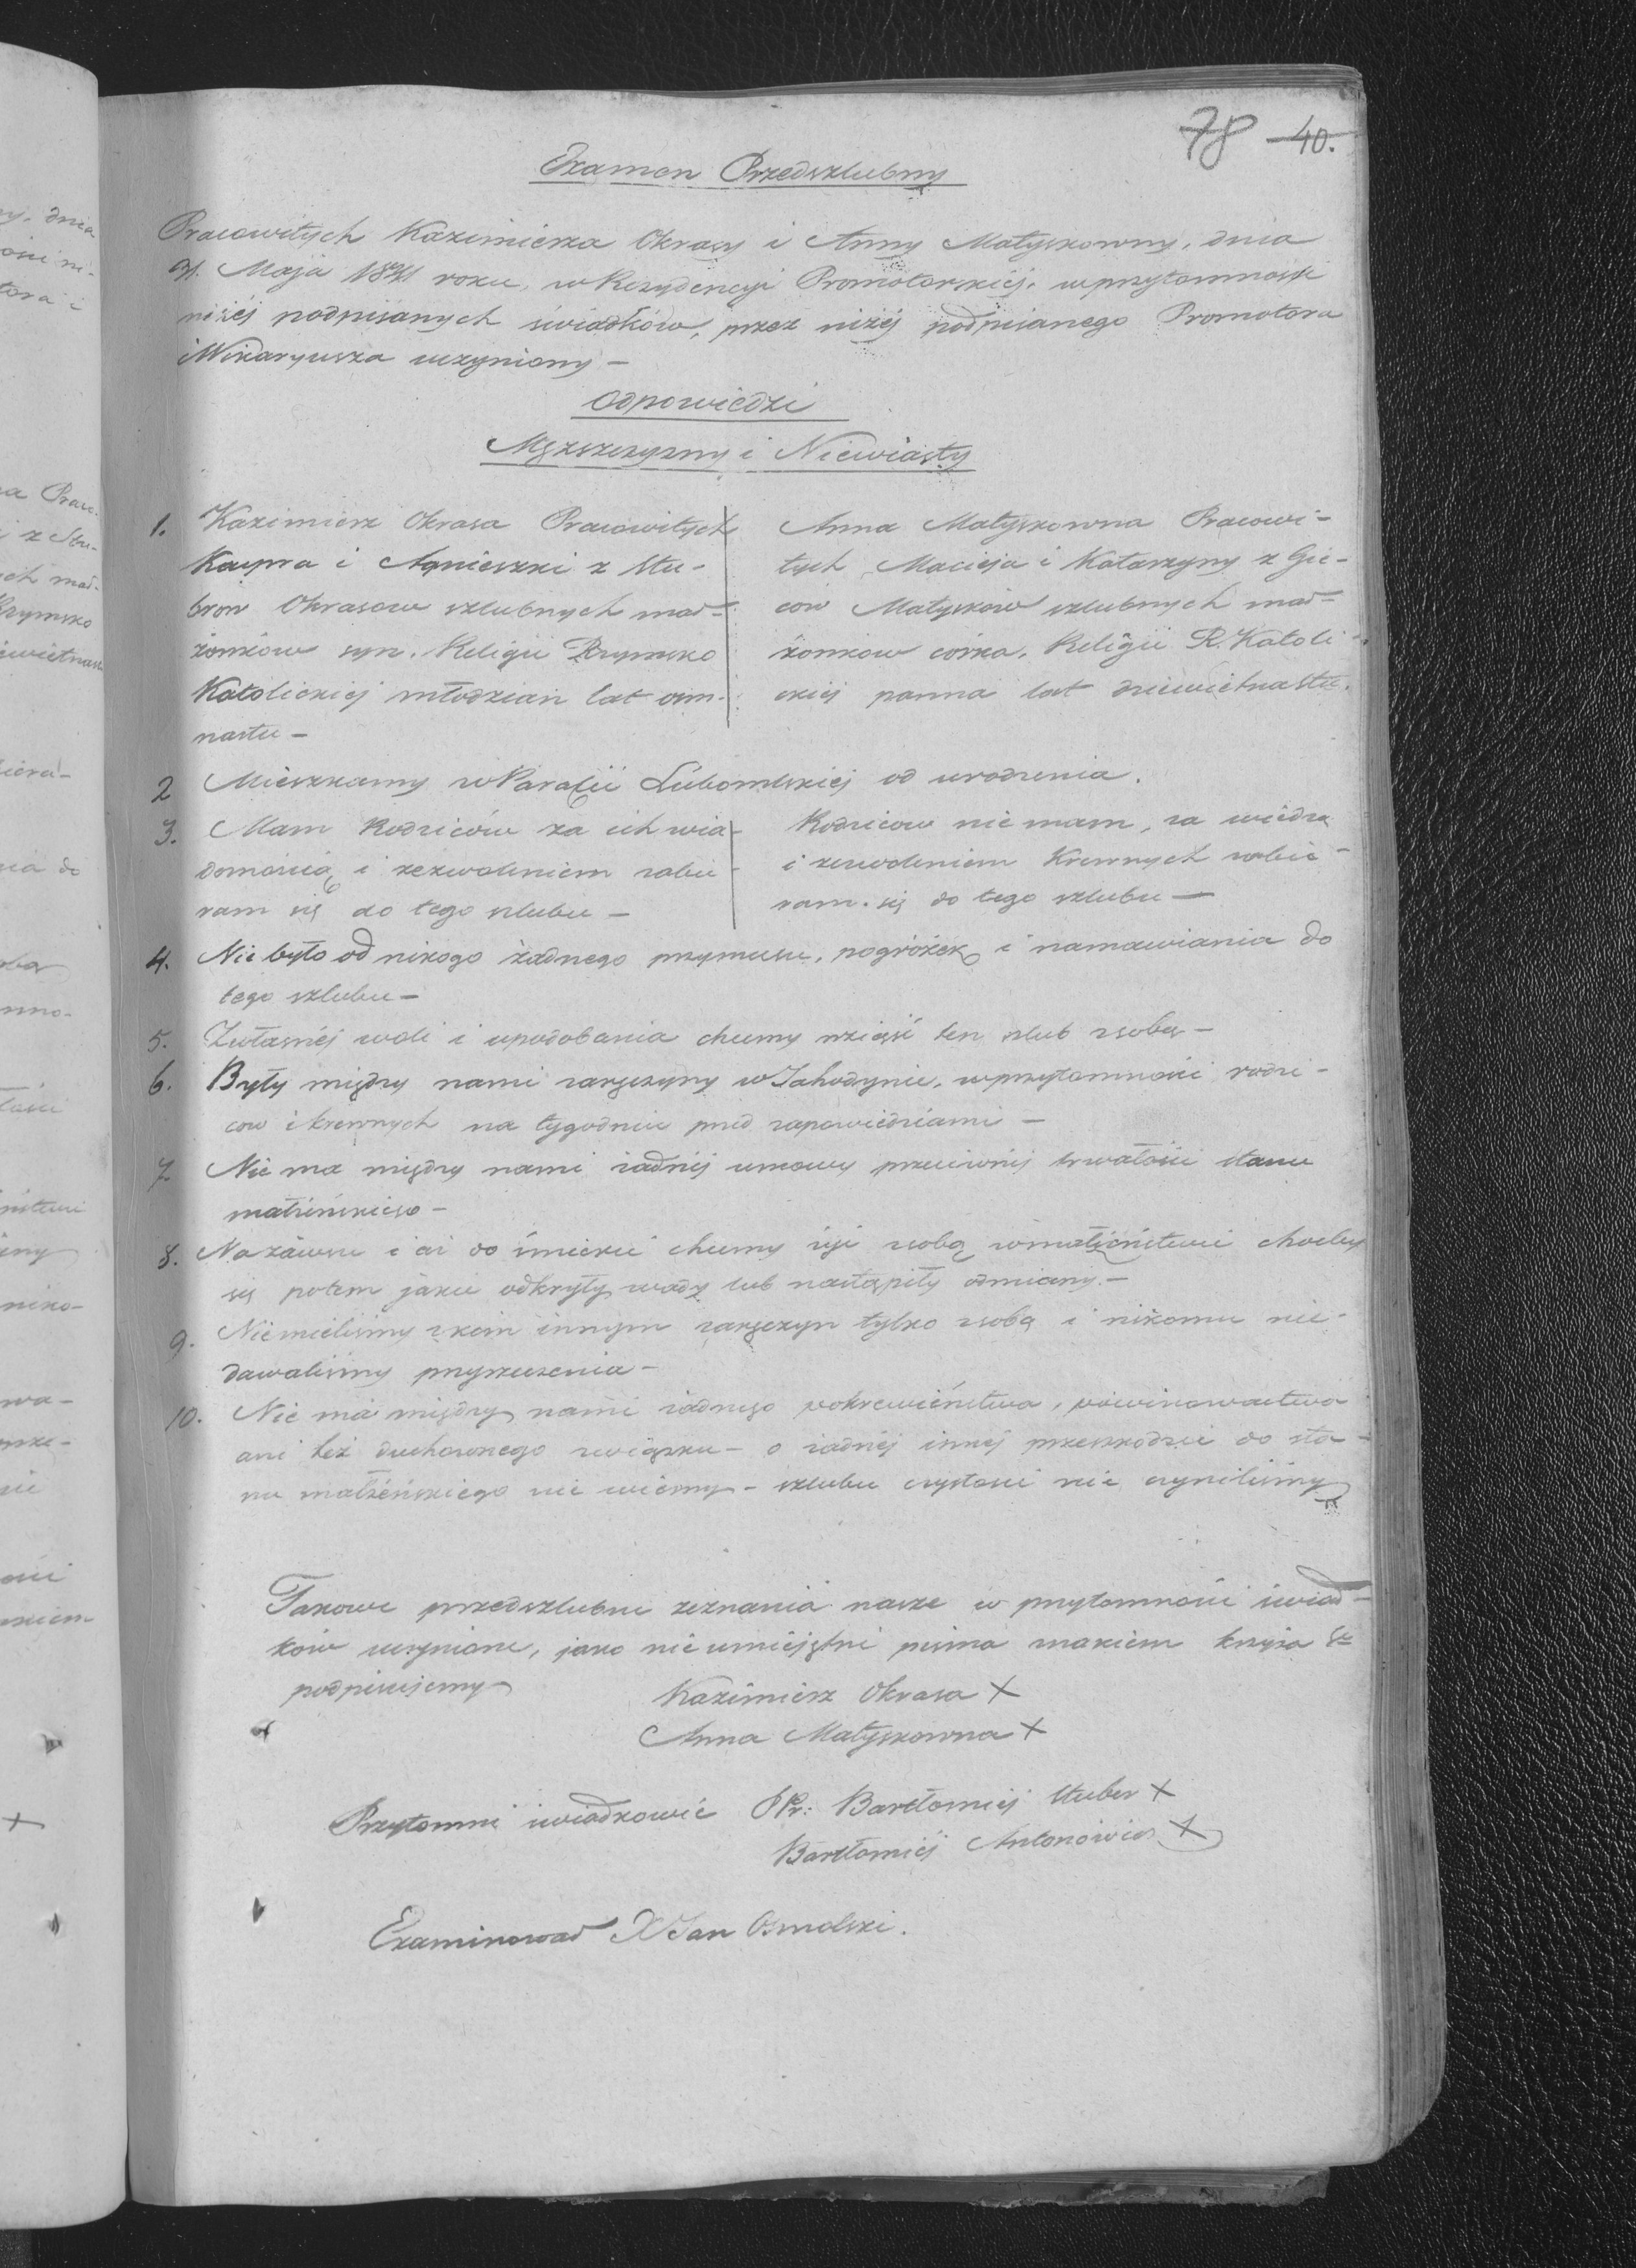 78 40.
Examen Przedszlubny
Pracowitych Kazimierza Okrasy i Anny Matyskowny, dnia
Maja 1841 roku, w Rezydencyi Promotorskiéj, w przytomności
niżéj podpisanych świadków, przez niżéj podpisanego Promotora
i Wikaryusza uczyniony –
Odpowiedzi
Męższczyzny i Niewiasty
1. Kazimierz Okrasa Pracowitych
Kacpra i Agnieszki z Stu-
brow Okrasow szlubnych mał-
żonków syn. Religii Rzymsko
Katolickiéj młodzian lat ośm-
nastu –
Anna Matyskowna Pracowi-
tych Macieja i Katarzyny z Gie-
cow Matysków szlubnych mał-
żonkow córka, Religii R. Katoli-
ckiéj panna lat dziewietnastu.
2 Mieszkamy w Parafii Lubomlskiéj od urodzenia.
3. Mam Rodziców za ich wia-
domością i zezwoleniem zabie-
ram się do tego szlubu –
Rodzicow nie mam, za wiedzą
i zezwoleniem Krewnych zabie-
ram się do tego szlubu —
4. Nie było od nikogo żadnego przymusu, pogróżek i namawiania do
tego szlubu –
5. Z własnéj woli i upodobania chcemy wziąść ten szlub z sobą –
6. Były między nami zaręczyny w Jahodynie, w przytomności rodzi-
cow i krewnych na tygodniu przed zapowiedziami –
7. Nie ma między nami żadnéj umowy przeciwnéj trwałości stanu
małżeńskiego –
8. Na zawsze i aż do śmierci chcemy żyć z sobą w małżeństwie choćby
się potem jakie odkryły wady lub nastąpiły odmiany. –
9. Nie mieliśmy z kim innym zaręczyn tylko z sobą i nikomu nie-
dawaliśmy przyrzeczenia –
10. Nie ma między nami żadnego pokrewieństwa, powinowactwa
ani też duchownego związku – o żadnéj innéj przeszkodzie do sta-
nu małżeńskiego nie wiémy – szlubu czystości nie czyniliśmy
Takowe przedszlubne zeznania nasze w przytomności świad-
ków uczynione, jako nie umiejętni pisma znakiem krzyża Sgo
podpisujemy
Kazimierz Okrasa X
Anna Matyskowna X
Przytomni świadkowie PPr: Bartłomiéj Stuber X
Bartłomiéj Antonowicz X
Examinował X Jan Osmolski.